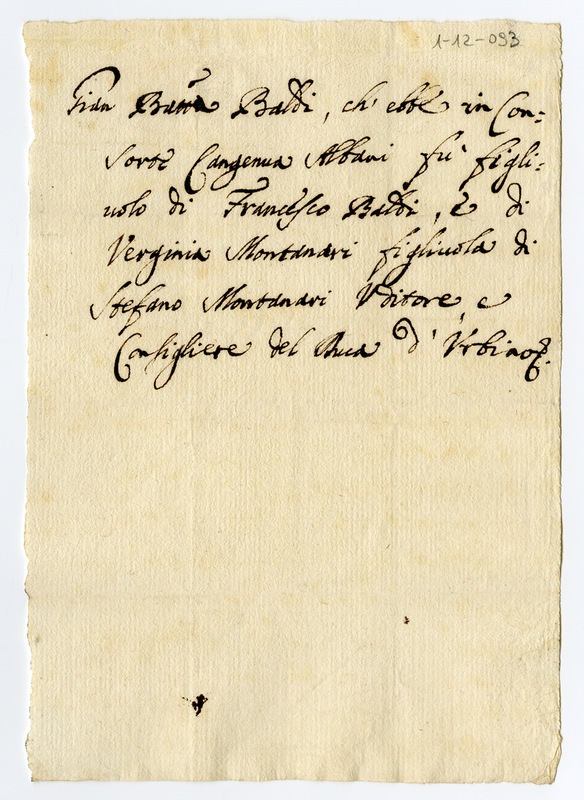 1-12-093
Gian Batta Baldi, ch' ebbe in Con=
sorte Cangenua Albani fù figli=
uolo di Francesco Baldi, è di
Verginia Montanari figliuola di
Stefano Montanari Vditore e
Consigliere del Duca d' Vrbino